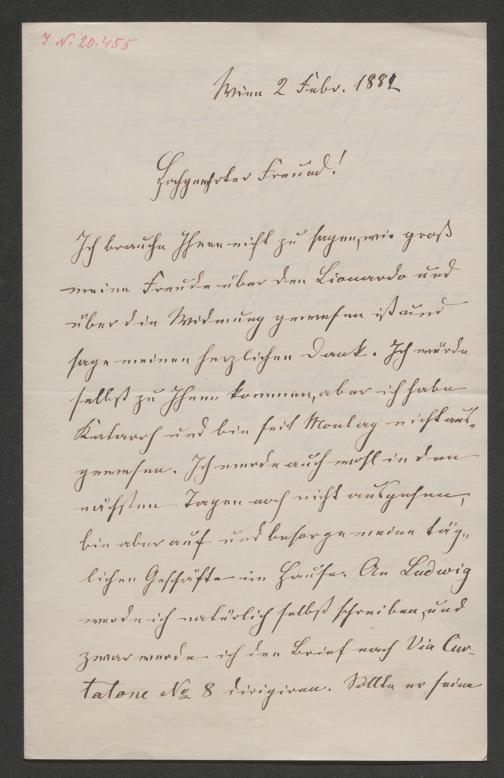 I. N. 20.455
Wien 2 Febr. 1882
Hochgeehrter Freund!
Ich brauche Ihnen nicht zu sagen, wie groß
meine Freude über den Lionardo und
über die Widmung gewesen ist und
sage meinen herzlichen Dank. Ich würde
selbst zu Ihnen kommen, aber ich habe
Katarrh und bin seit Montag nicht aus-
gewesen. Ich werde auch wohl in den
nächsten Tagen noch nicht ausgehen,
bin aber auf und besorge meine täg-
lichen Geschäfte im Hause. An Ludwig
werde ich natürlich selbst schreiben, und
zwar werde ich den Brief nach Via Cur-
tatone No 8 dirigiren. Sollte er seine